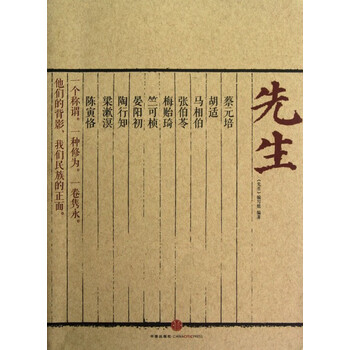 先生
《先生》编写组 编著
蔡元培
胡适
马相伯
张伯苓
梅贻琦
竺可桢
晏阳初
陶行知
梁漱溟
陈寅恪
一个称谓，一种修为，一卷隽永。
他们的背影，我们民族的正面。
中信出版社·CHINACITICPRESS